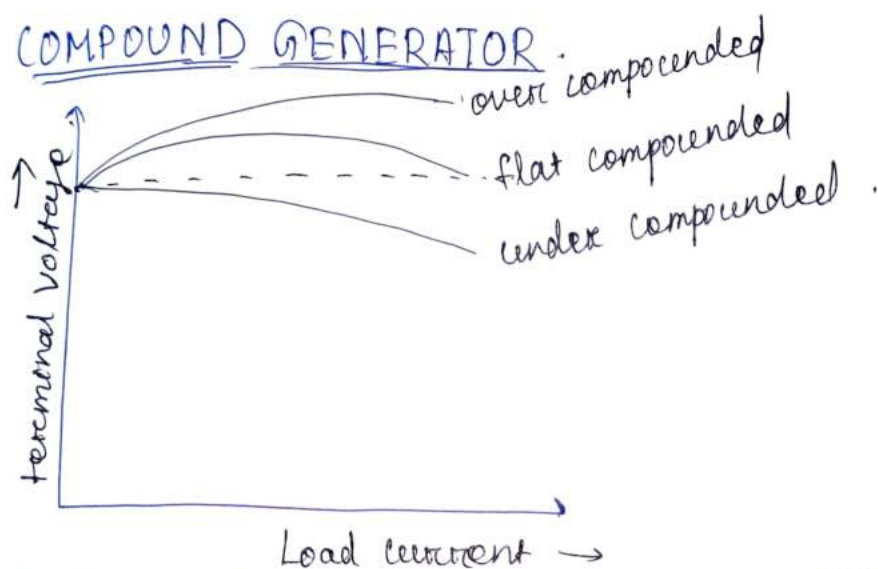 COMPOUND GENERATOR
over compounded
flat compounded
under compounded.
terminal voltage
Load current